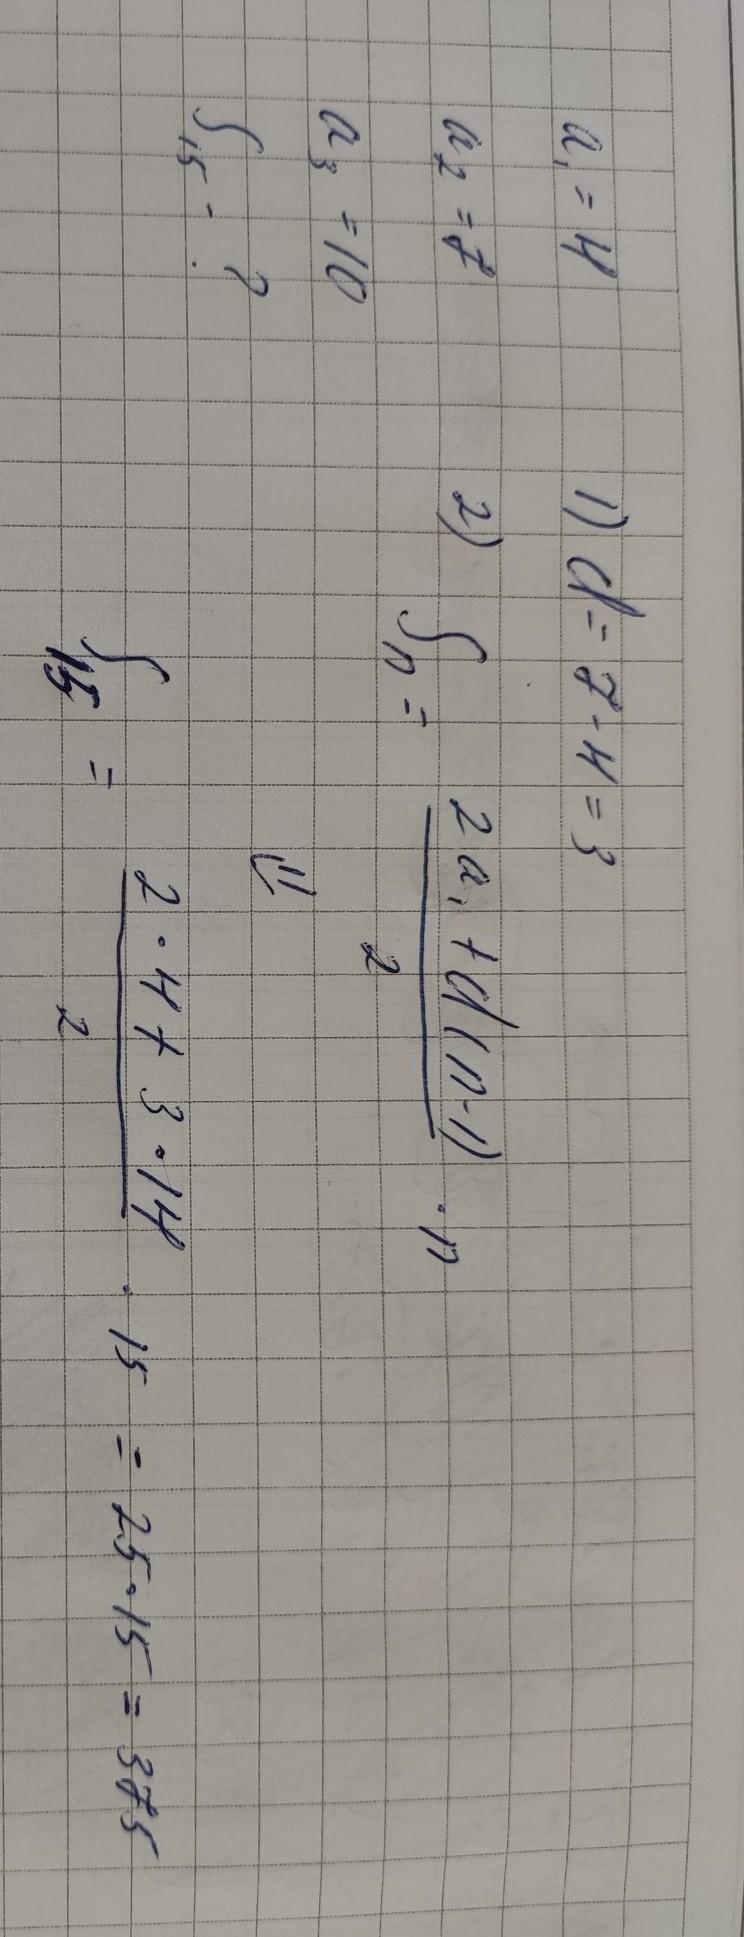 a₁ = 4
a₂ = 7
a₃ = 10
S₁₅ - ?
1) d = 7 - 4 = 3
2) Sₙ = (2a₁ + d(n-1))/2 · n
⇓
S₁₅ = (2 · 4 + 3 · 14)/2 · 15 = 25 · 15 = 375